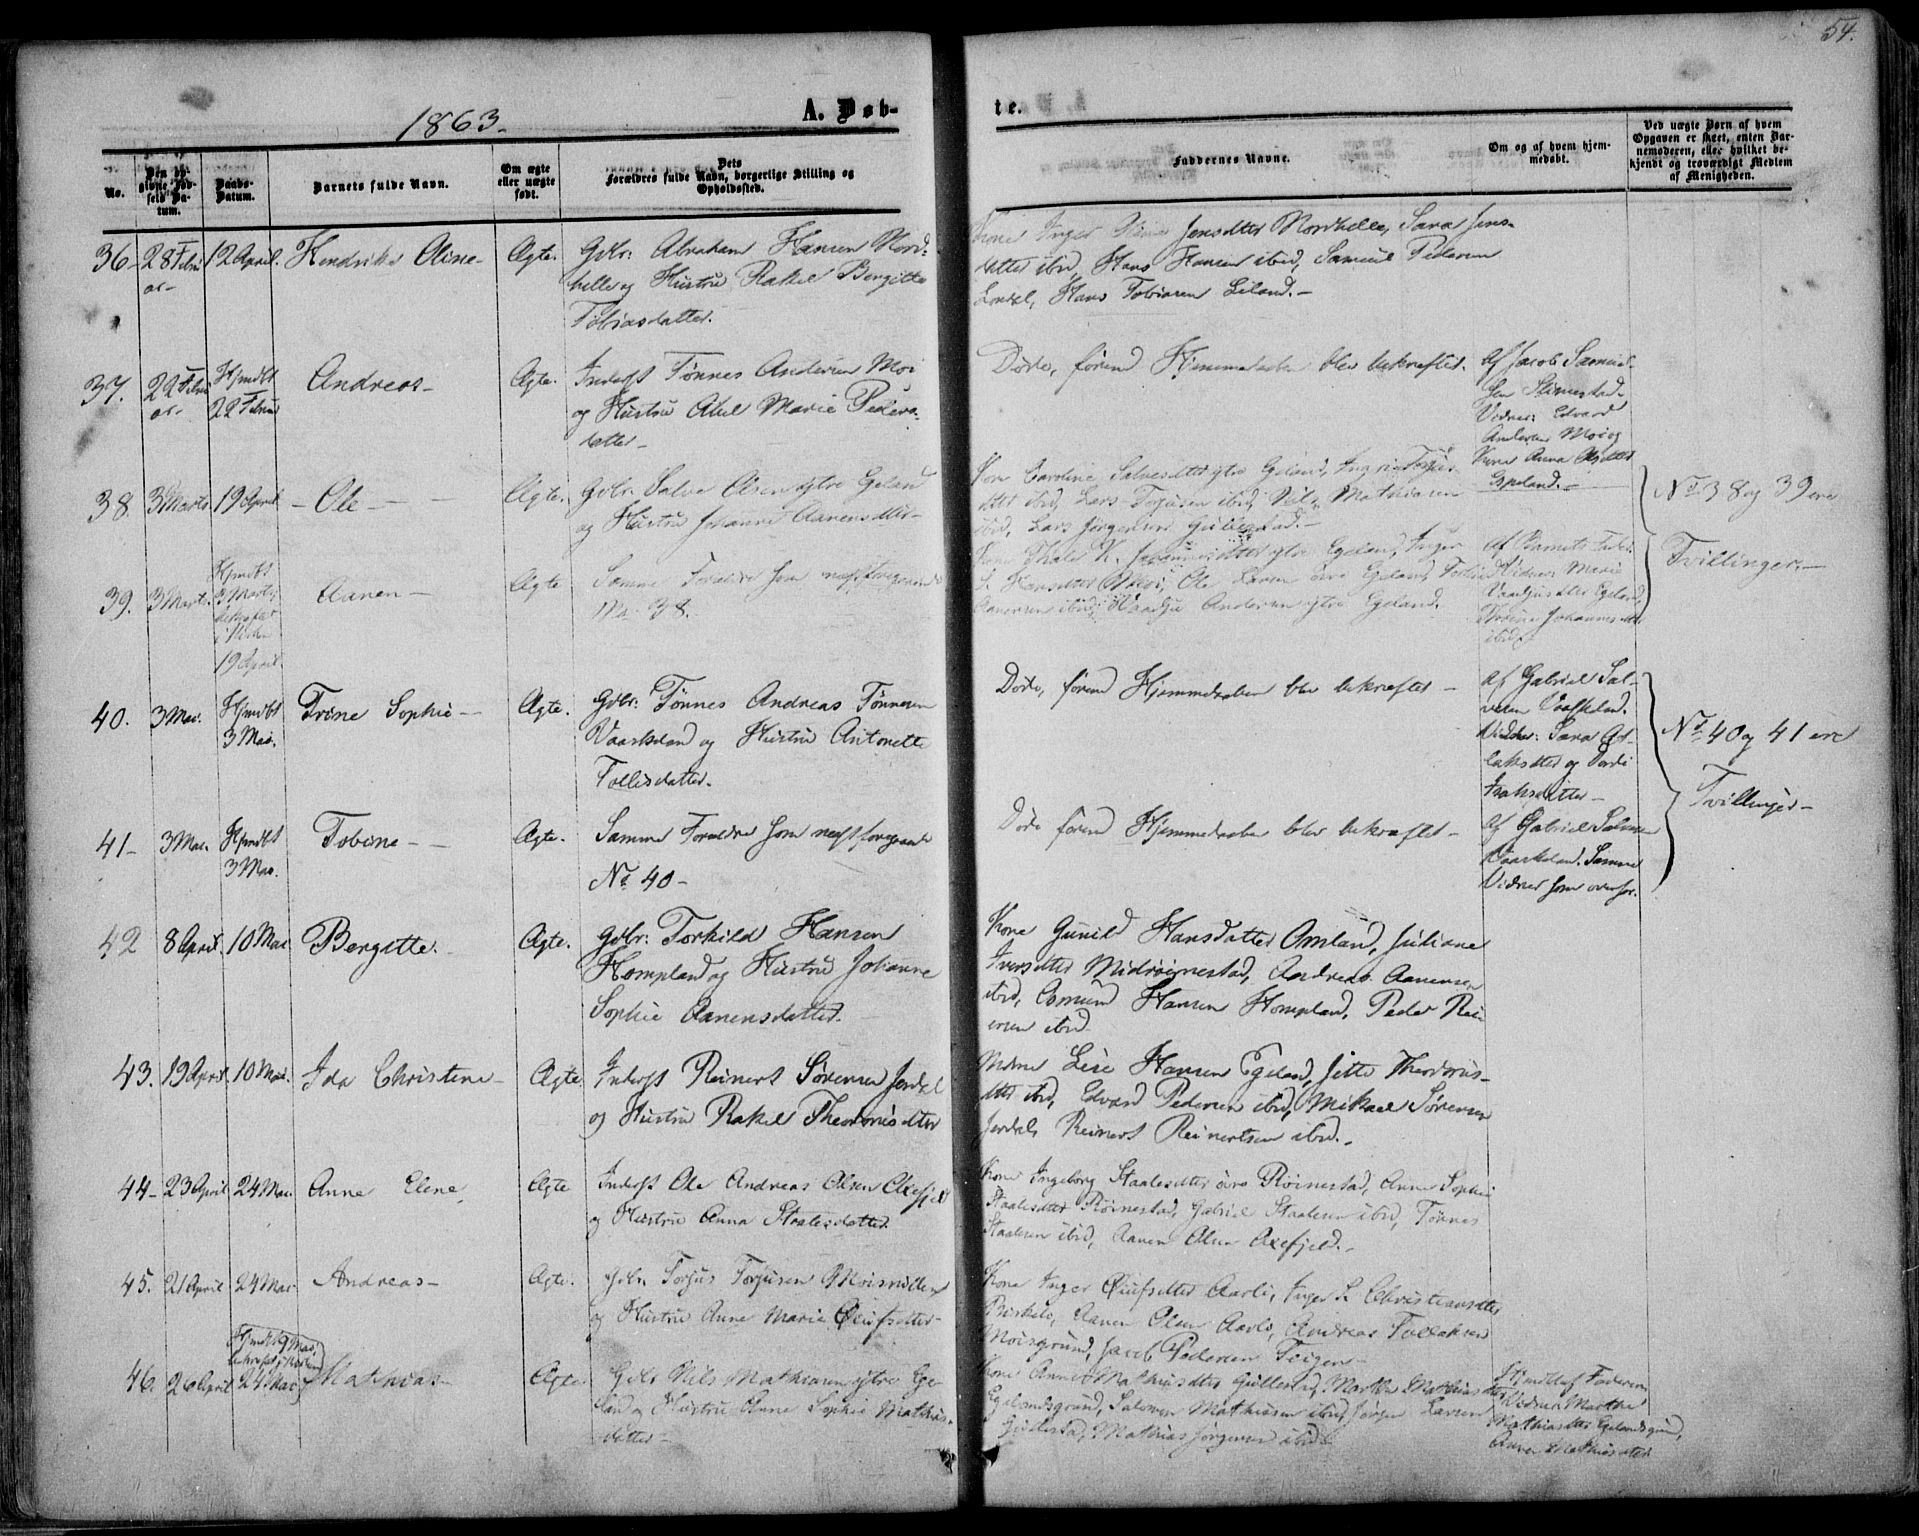 54.
1863.
A. Døb-
te.
No.
Den opgivne Fødsels Datum.
Daabs-Datum.
Barnets fulde Navn.
Om ægte eller uægte født.
Dets Forældres fulde Navn, borgerlige Stilling og Opholdssted.
Faddernes Navne.
Om og af hvem hjemmedøbt.
Ved uægte Børn af hvem Opgaven er skeet, enten Barnemoderen, eller hvilket bekjendt og troværdigt Medlem af Menigheden.
36- 28 Febru 12 April. Hendrikke Oline- Ægte. Gdbr: Abraham Hansen Nord-
ar-
helle og Hustru Rakel Bergitte
Tobiasdatter.
Kone Inger Jensdtter Nordhelle, Sara Jens-
datter ibid, Hans Hansen ibid, Samuel Pedersen
Hans Tobiasen Eiland.-
37. 22 Febru Hjmdbt Andreas- Ægte. Inderst Tønnes Andersen Moi
ar- 22 Febru
og Hustru Abel Marie Peders-
datter-
Døde, førend Hjemmedaaben blev bekræftet.
af Jacob Samuel-
sen Stimestad.
Vidner: Edvard
Andersen Moi og
Kone Anna
Espeland.-
38. 3 Marts 19 April -Ole- - Ægte. Gdbr: Salve Olsen ytre Egeland
og Hustru Johanne Aanensdtter-
Kone Caroline Salvesdtter ytre Egeland,
ibid, Lars Torjusen ibid, Nils Mathiasen
ibid, Lars Jørgensen Gullestad.-
No 38 og 39 ere
Tvillinger.-
39. 3 Marts. Hjmdbt Aanen- Ægte Samme Forældre som næstforegaaende
3 Marts,
bekræftet
i Kirken
19 April.
No. 38.
Kone Thale K. ytre Egeland, Inger
S. Hansdtter Moi, Ole Larsen øvre Egeland,
Aanensen ibid, Andersen ytre Egeland.
af Barnets Fader.
Vidner: Marie
Egeland,
Tobine Johannesdtter
ibid.
40. 3 Mai. Hjmdbt Trine Sophie- Ægte. Gdbr: Tønnes Andreas Tønnesen
3 Mai.
Vaaskeland og Hustru Antonette
Tollisdatter.
Døde, førend Hjemmedaaben blev bekræftet-
af Gabriel Sal-
vesen Vaaskeland.
Vidner: Sara As-
laksdtter og
Isaksdatter-
No 40 og 41 ere
Tvillinger-
41- 3 Mai. Hjmdbt Tobine- - Ægte. Samme Forældre som næstforegaaende
3 Mai.
No 40-
Døde førend Hjemmedaaben blev bekræftet-
af Gabriel Salvesen
Vaaskeland. Samme
Vidner som ovenfor.
42 8 April. 10 Mai Bergitte. Ægte. Gdbr: Torkild Hansen
Hompland og Hustru Johanne
Sophie Aanensdatter.
Kone Gunild Hansdatter Omland, Juliane
Iversdtter Midrøinestad, Andreas Aanensen
ibid, Asmund Hansen Hompland, Peder Rei-
ersen ibid
43. 19 April. 10 Mai. Ida Christine- Ægte Inderst Reinert Sørensen Jerdal
og Hustru Rakel Theodorisdtter
Lise Hansen Egeland, Jitte Theodoris-
dtter ibid, Edvard Pedersen ibid, Mikael Sørensen
Jerdal, Reinert Reinertsen ibid.-
44- 23 April 24 Mai Anne Elene, Ægte Inderst Ole Andreas Olsen Oxefjeld
og Hustru Anna Staalesdatter.
Kone Ingeborg Staalesdtter øvre Røinestad, Anne Sophie
Staalesdtter Røinestad, Gabriel Staalesen ibid, Tønnes
Staalesen ibid, Aanen Olsen Oxefjeld.-
45. 21 April 24 Mai Andreas- Ægte. Gdbr Torjus Torjusen
og Hustru Anne Marie
Kone Inger Aarli, Inger S. Christiansdtter
Birkeli, Aanen Olsen Aarli, Andreas Tollaksen
Moisgrund, Jacob Pedersen
46. 26 April Hjmdbt 9 Mai, Mathias- Ægte. Gdbr Nils Mathiasen ytre Ege-
24 Mai
land og Hustru Anne Sophie Mathias-
datter-
Kone Anne Mathiasdtter Gullestad, Marthe Mathiasdtter
Egelandsgrund, Salomon Mathiasen ibid, Jørgen Larsen
Gullestad, Mathias Jørgensen ibid-
Hjmdbt af Faderen,
Vidner: Marthe
Mathiasdtter Egelandsgrund,
Anne Mathiasdtter